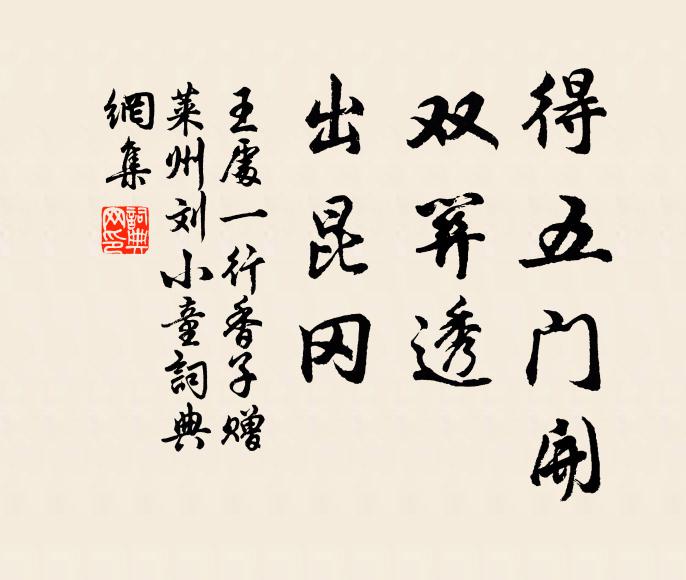 得五门開
双关透
出昆冈
王處一行香子赠
莱州刘小童詞典
網集
詞典
网印